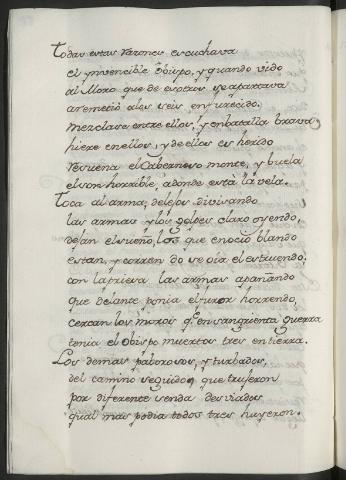 Todas estas razones escuchava
el ynvencible Obispo, y quando vido
al Moro que de esotros se apartava
aremetió a los seis enfurecido.
mezclase entre ellos, y en batalla brava
hiere en ellos, y de ellos es herido
resuena el Cabernoso monte, y buela
el son horrible, a donde está la vela.
Toca al arma, de lejos divisando
las armas y los golpes claro oyendo,
dejan el sueño, los que en ocio blando
estan, y corren do se oia el estruendo,
con la priesa las armas apañando
que delante ponia el furor horrendo,
cercan los moros qe. en sangrienta guerra
tenia el Obispo muertos tres en tierra.
Los demas paborosos, y turbados,
del camino seguido, que trujeron
por diferente senda desviados
qual mas podia todos tres huyeron.